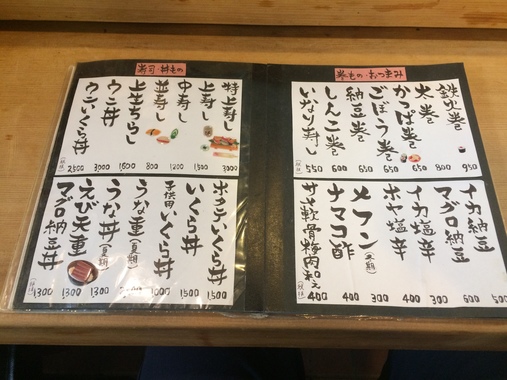 寿司・丼もの
特上寿し 3000
上寿し 1500
中寿し 1200
並寿し 800
上生ちらし 1600
ウニ丼 3000
ウニいくら丼 2500
ホタテいくら丼 1500
いくら丼 1500
子供用いくら丼 1000
うな重(夏期)
うな丼(夏期) 1300
えび天重 1300
マグロ納豆丼 1300
巻もの・おつまみ
鉄火巻 950
太巻 800
かっぱ巻 650
ごぼう巻 650
納豆巻 650
しんこ巻 600
いなり寿し 550
イカ納豆 500
マグロ納豆 600
イカ塩辛 300
ホヤ塩辛 400
メフン 300
ナマコ酢 400
サメ軟骨梅肉和え 400